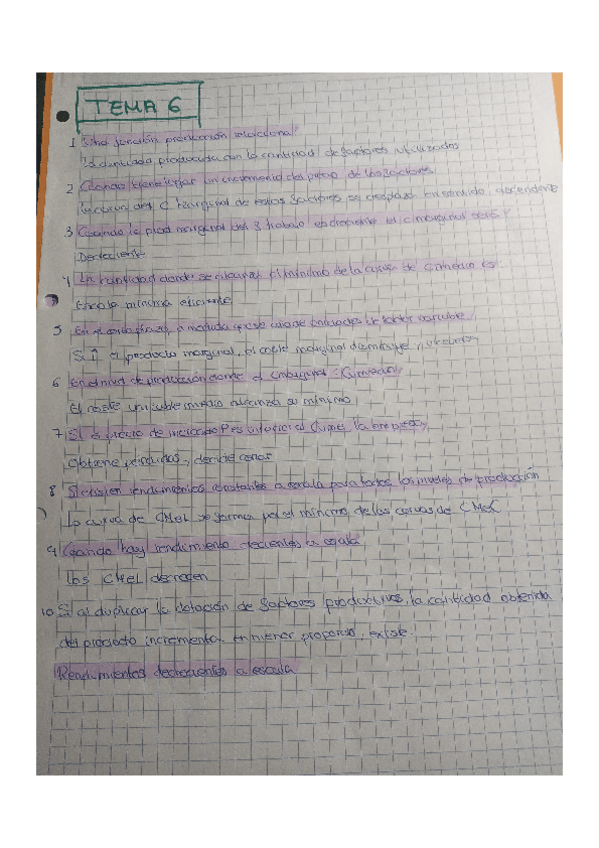 TEMA 6
1 Una función producción relaciona:
La cantidad producida con la cantidad de factores utilizados
2 Cuando tiene lugar un incremento del precio de los factores
la curva del C marginal de estos factores se desplaza en sentido ascendente
3 Cuando la prod marginal del trabajo es creciente el c marginal será?
Decreciente
4 La cantidad donde se alcanza el mínimo de la curva de es:
Escala mínima eficiente
5 En el corto plazo, a medida que se unidades factor variable.
Si ↑ el producto marginal, el coste marginal disminuye,
6 En el nivel de producción donde el
El coste variable medio alcanza su mínimo
7 Si el precio de mercado P es inferior al la empresa
Obtiene pérdidas, y debe cerrar
8 Si existen rendimientos constantes a escala para todos los niveles de producción
La curva de CMeL se forma por el mínimo de las curvas de CMeC
9 Cuando hay rendimiento crecientes a escala
Los CMeL decrecen
10 Si al duplicar la dotación de factores productivos, la cantidad obtenida
del producto incrementa en menor proporción, existe:
Rendimientos decrecientes a escala